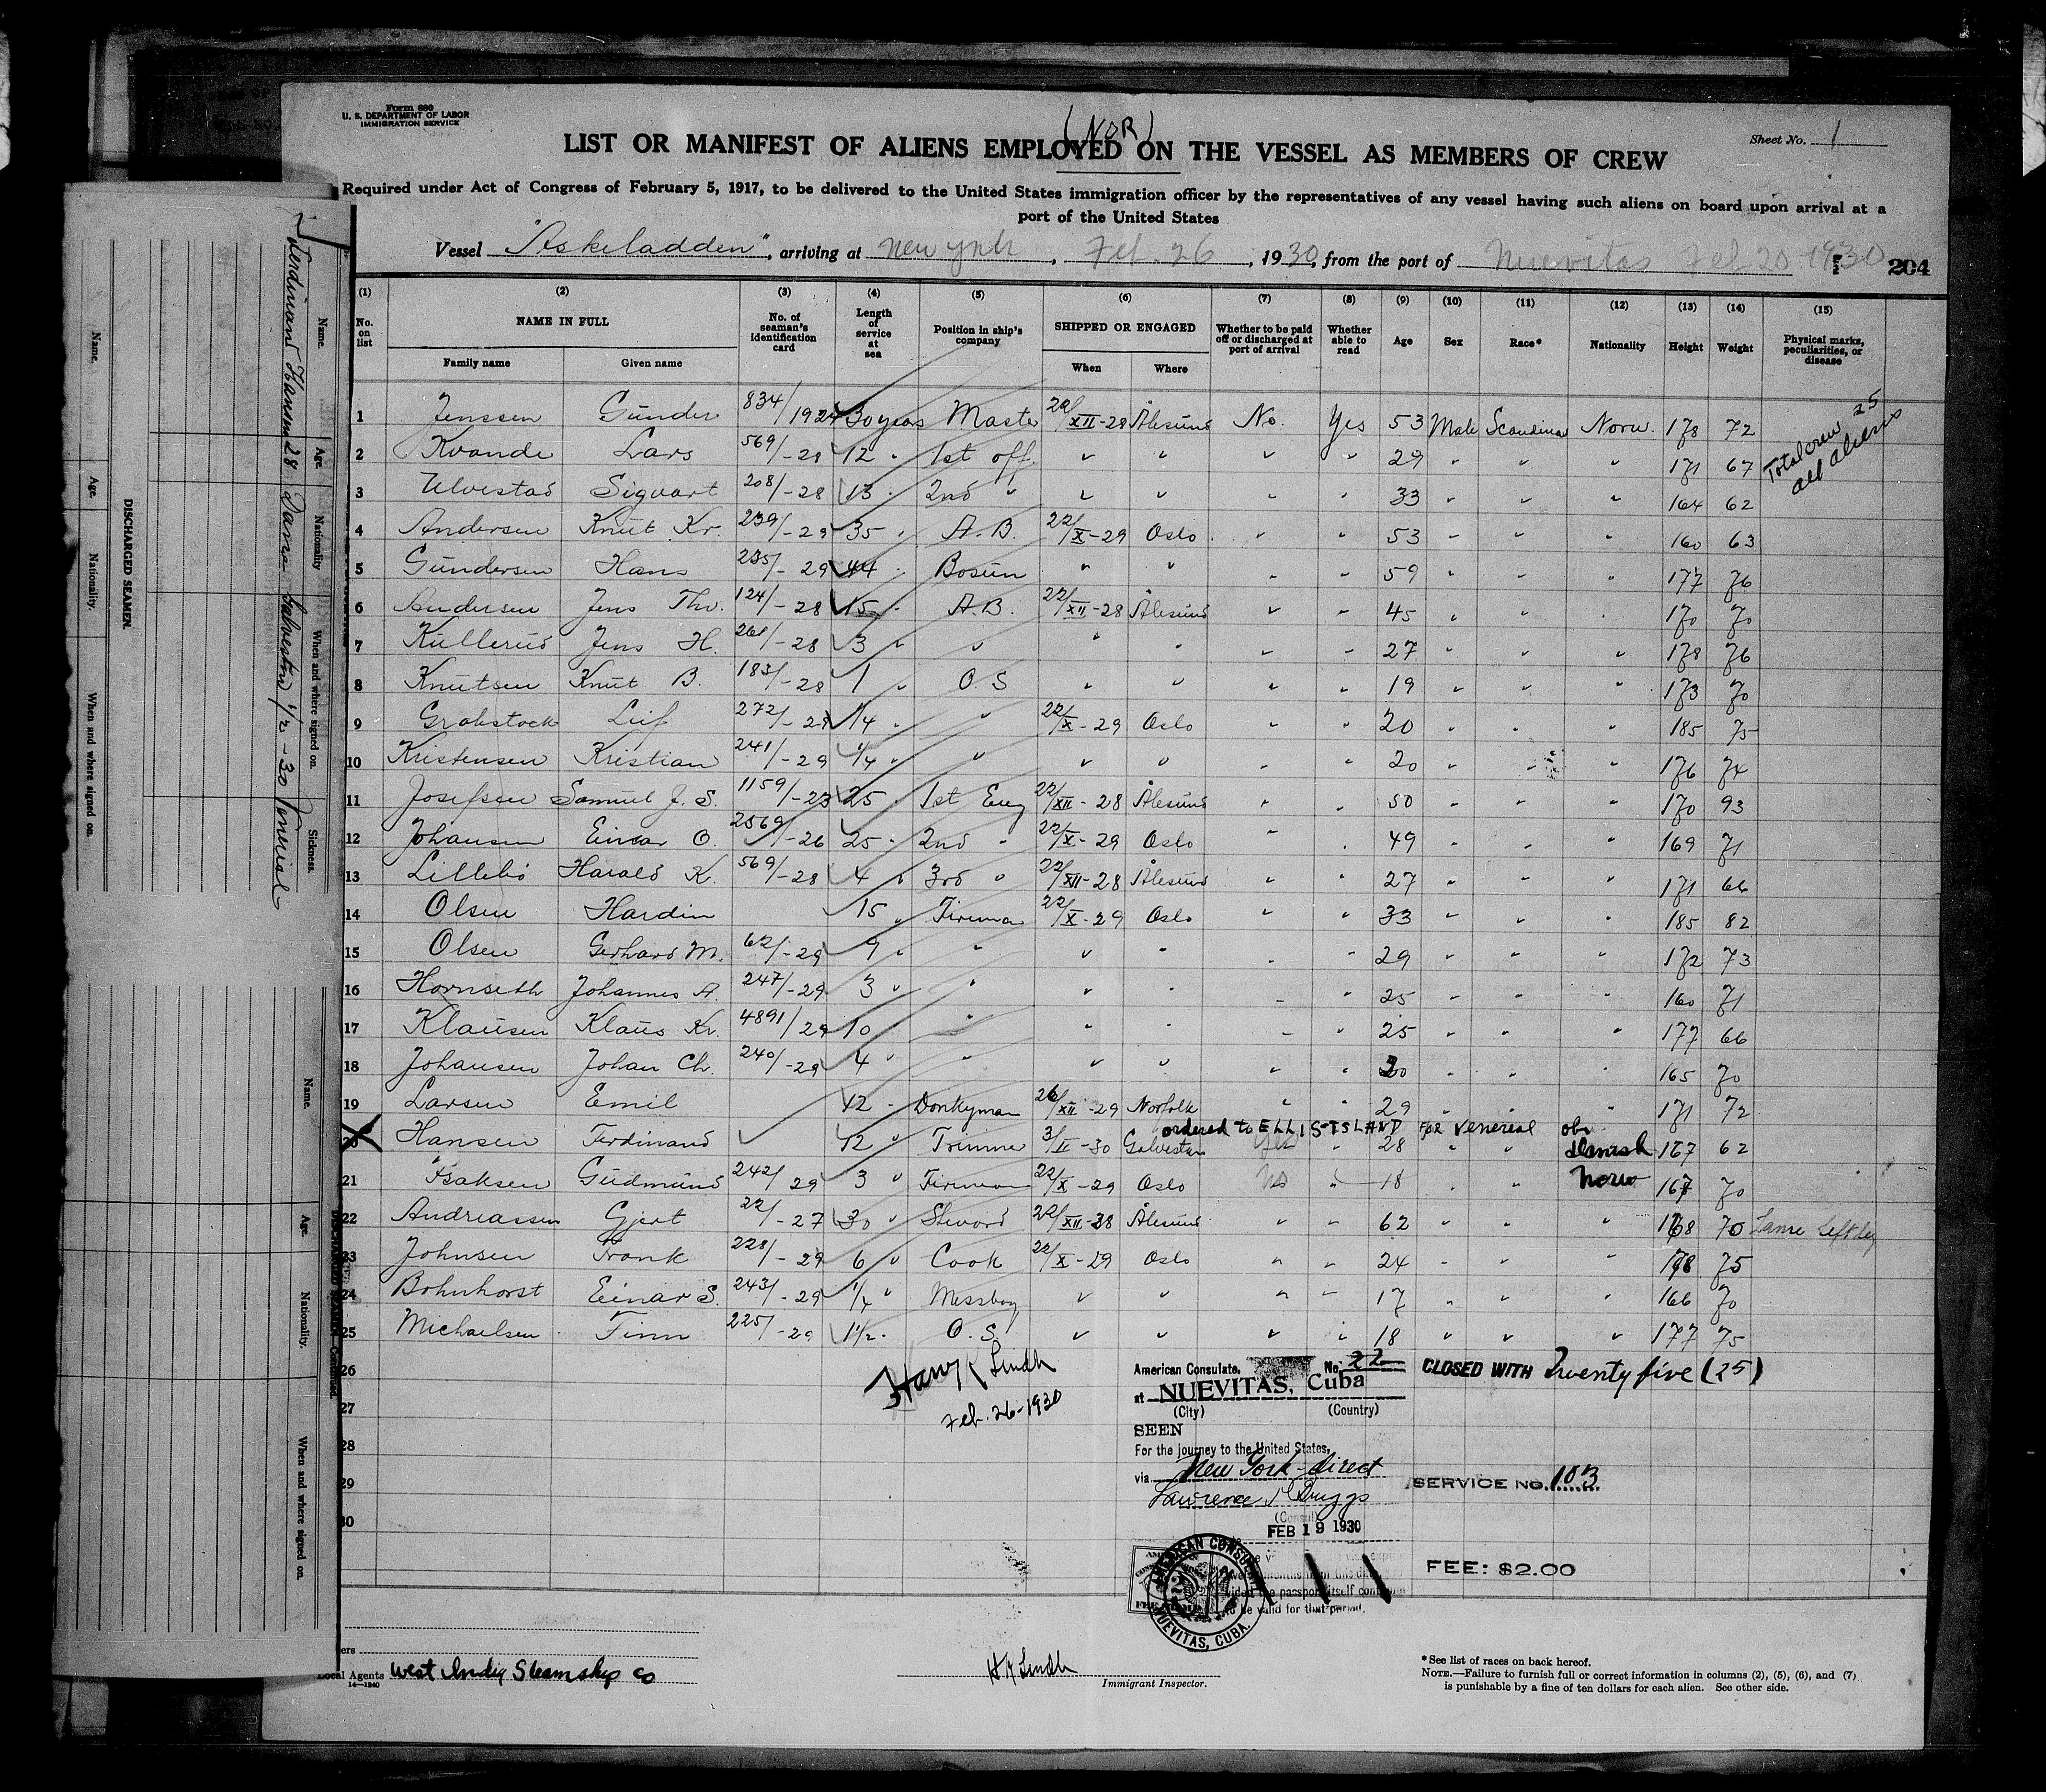 Form 680
U. S. DEPARTMENT OF LABOR
IMMIGRATION SERVICE
(NOR)
Sheet No. 1
LIST OR MANIFEST OF ALIENS EMPLOYED ON THE VESSEL AS MEMBERS OF CREW
Required under Act of Congress of February 5, 1917, to be delivered to the United States immigration officer by the representatives of any vessel having such aliens on board upon arrival at a
port of the United States
Vessel "Askeladden", arriving at New York, Feb. 26, 1930, from the port of Nuevitas Feb 20 1930 204
(1) (2) (3) (4) (5) (6) (7) (8) (9) (10) (11) (12) (13) (14) (15)
No. on list NAME IN FULL Family name Given name No. of seaman's identification card Length of service at sea Position in ship's company SHIPPED OR ENGAGED When Where Whether to be paid off or discharged at port of arrival Whether able to read Age Sex Race* Nationality Height Weight Physical marks, peculiarities, or disease
1 Jenssen Gunder 834/1924 30 years Master 22/XII-28 Ålesund No. Yes 53 Male Scandinav Norw. 178 72
Total crew 25
all aliens
2 Kvande Lars 569/-28 12 " 1st off. " " " " 29 " " " 171 67
3 Ulvestad Sigvart 208/-28 13 " 2nd " " " " " 33 " " " 164 62
4 Andersen Knut Kr. 239/-29 35 " A.B. 22/X-29 Oslo " " 53 " " " 160 63
5 Gundersen Hans 235/-29 44 " Bosun " " " " 59 " " " 177 76
6 Andersen Jens Thv. 124/-28 15 " A.B. 22/XII-28 Ålesund " " 45 " " " 170 70
7 Kullerud Jens H. 261/-28 3 " " " " " " 27 " " " 178 76
8 Knutsen Knut B. 183/-28 1 " O.S " " " " 19 " " " 173 70
9 Grobstock Leif 272/-29 1/4 " " 22/X-29 Oslo " " 20 " " " 185 75
10 Kristensen Kristian 241/-29 1/4 " " " " " " 20 " " " 176 74
11 Josefsen Samuel J. S. 1159/-23 25 " 1st Eng 22/XII-28 Ålesund " " 50 " " " 170 93
12 Johansen Einar O. 2569/-26 25 " 2nd " 22/X-29 Oslo " " 49 " " " 169 71
13 Lillebø Harald K. 569/-28 4 " 3rd " 22/XII-28 Ålesund " " 27 " " " 171 66
14 Olsen Hardin 15 " Fireman 22/X-29 Oslo " " 33 " " " 185 82
15 Olsen Gerhard M. 62/-29 9 " " " " " " 29 " " " 172 73
16 Hornseth Johannes A. 247/-29 3 " " " " " " 25 " " " 160 71
17 Klausen Klaus Kr. 4891/29 10 " " " " " " 25 " " " 177 66
18 Johansen Johan Ch. 240/-29 4 " " " " " " 20 " " " 165 70
19 Larsen Emil 12 " Donkyman 26/XII-29 Norfolk " " 29 " " " 171 72
ordered to ELLIS ISLAND FOR Venereal obs
20 Hansen Ferdinand 12 " Trimmer 3/II-30 Galveston Yes " 28 " " Danish 167 62
21 Isaksen Gudmund 242/29 3 " Fireman 22/X-29 Oslo No " 18 " " Norw 167 70
22 Andreassen Gjert 22/-27 30 " Steward 22/XII-28 Ålesund " " 62 " " " 168 70 Lame Left leg
23 Johnsen Frank 228/-29 6 " Cook 22/X-29 Oslo " " 24 " " " 178 75
24 Bohnhorst Einar S. 243/-29 1/4 " Messboy " " " " 17 " " " 166 70
25 Michaelsen Finn 225/-29 1 1/2 " O.S. " " " " 18 " " " 177 75
26
27
28
29
30
Harry K Lindh
Feb. 26-1930
American Consulate, No. 22
at NUEVITAS, Cuba
(City) (Country)
SEEN
For the journey to the United States,
via New York direct
Lawrence Briggs
(Consul)
FEB 19 1930
AMERICAN CONSULATE
NUEVITAS, CUBA.
the passport itself
be valid for that period.
CLOSED WITH Twenty five (25)
SERVICE NO. 103
FEE: $2.00
Local Agents West India Steamship Co
14—1240
H K Lindh
Immigrant Inspector.
*See list of races on back hereof.
NOTE.—Failure to furnish full or correct information in columns (2), (5), (6), and (7)
is punishable by a fine of ten dollars for each alien. See other side.
DISCHARGED SEAMEN.
Name. Age. Nationality. When and where signed on.
Name. Age. Nationality When and where signed on. Sickness.
Ferdinand Hansen 28 Dane Galveston 1/2-30 Venerial
Name. Age. Nationality. When and where signed on.